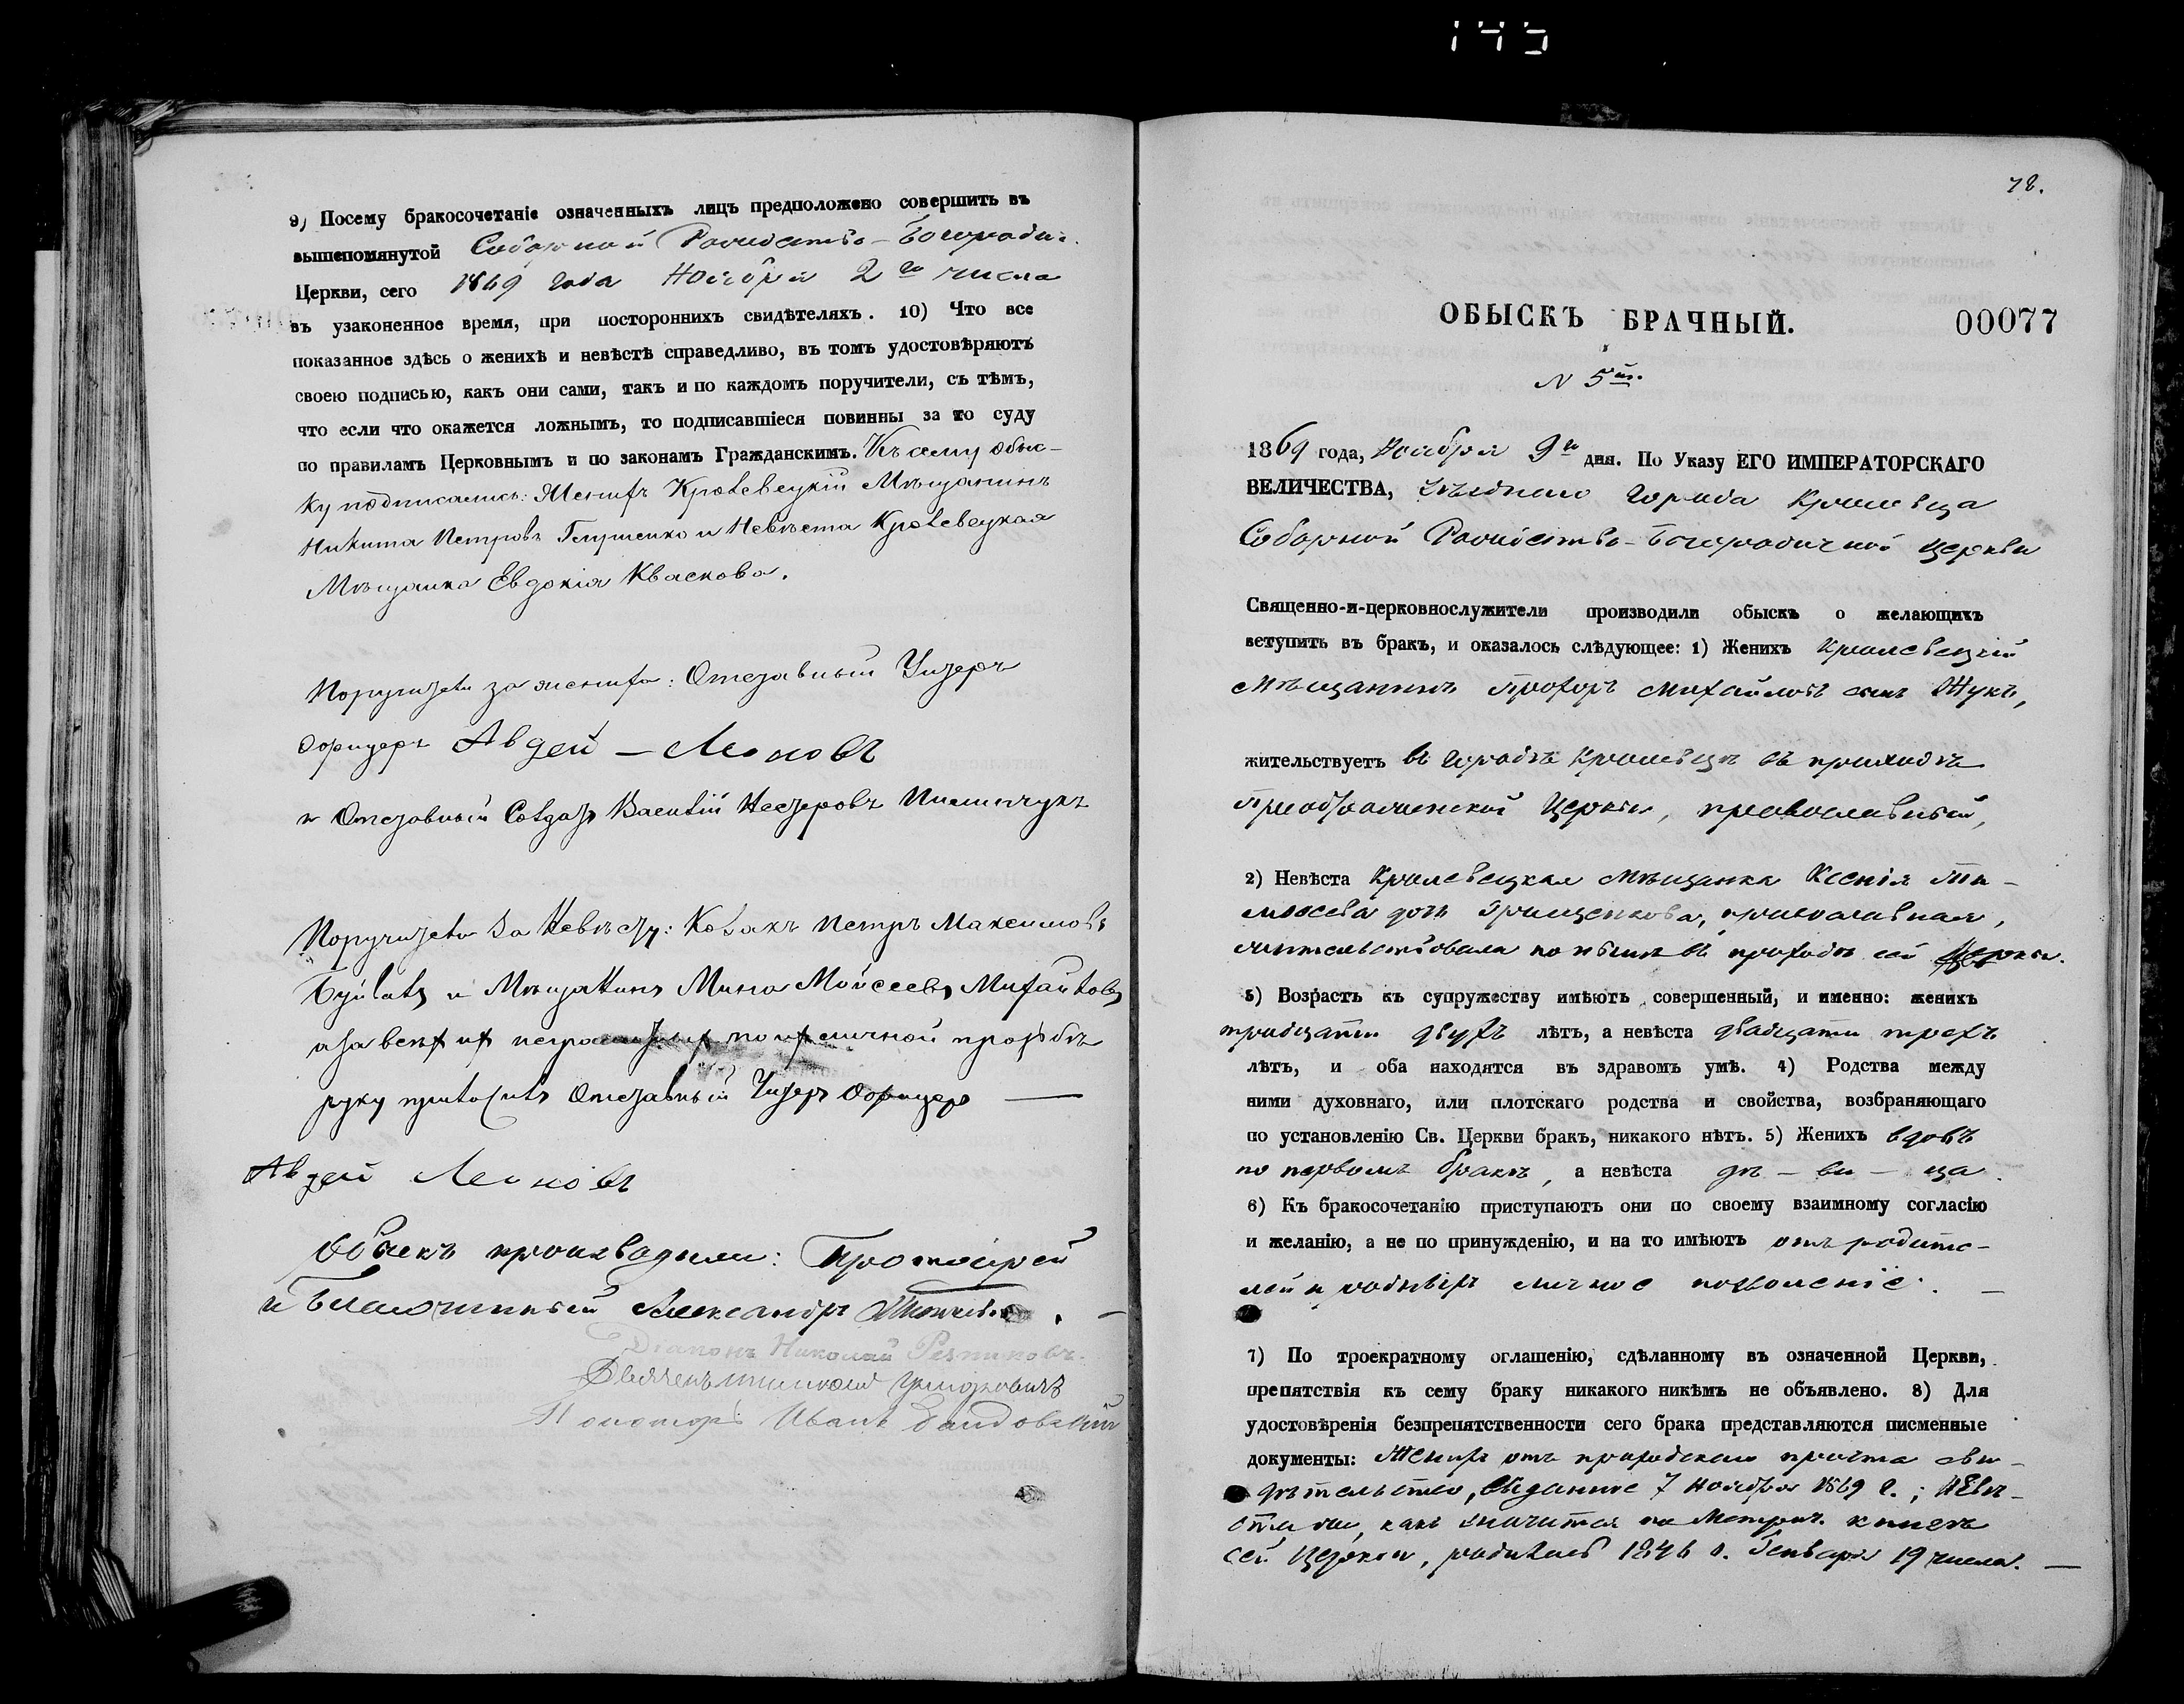 145
9) Посему бракосочетаніе означенныхъ лицъ предположено совершить въ
вышепомянутой Соборной Рождество-Богороди.
Церкви, сего 1869 года Ноября 2го числа
въ узаконенное время, при постороннихъ свидѣтеляхъ. 10) Что все
показанное здѣсь о женихѣ и невѣстѣ справедливо, въ томъ удостовѣряютъ
своею подписью, какъ они сами, такъ и по каждомъ поручители, съ тѣмъ,
что если что окажется ложнымъ, то подписавшіеся повинны за то суду
по правиламъ Церковнымъ и по законамъ Гражданскимъ. Къ сему обыс-
ку подписались: Женихъ Кролевецкій Мѣщанинъ
Никита Петровъ и Невѣста Кролевецкая
Мѣщанка Евдокія Кваскова.
Поручители за жениха: Отставный Унтеръ
Офицеръ Авдей - Леоновъ
и Отставный Солдатъ Василій Несторовъ
Поручители за Невѣсту: Козакъ Петръ Максимовъ
и Мѣщанинъ Мина Мойсеевъ Михайловъ
а за всехъ ихъ по ихъ личной прозьбѣ
руку приложилъ Отставный Унтеръ Офицеръ —
Авдей Леоновъ
Обыскъ производили: Протоіерей
и Благочинный Александръ
Діаконъ Николай Резниковъ.
Пономарь Иванъ
78.
ОБЫСКЪ БРАЧНЫЙ. 00077
N 5й.
1869 года, Ноября 9го дня. По Указу ЕГО ИМПЕРАТОРСКАГО
ВЕЛИЧЕСТВА, уѣзднаго города Кролевца
Соборной Рождество-Богородичной церкви
Священно-и-церковнослужители производили обыскъ о желающихъ
вступить въ бракъ, и оказалось слѣдующее: 1) Женихъ Кролевецкій
мѣщанинъ Прохоръ Михайловъ сынъ Жукъ,
жительствуетъ въ городѣ Кролевцѣ въ приходѣ
Преображенской Церкви, православный,
2) Невѣста Кролевецкая мѣщанка Ксенія Ти-
моѳеева дочь Грищенкова, православная,
жительствовала по нынѣ въ приходѣ сей Церкви.
3) Возрастъ къ супружеству имѣютъ совершенный, и именно: женихъ
тридцати двухъ лѣтъ, а невѣста двадцати трехъ
лѣтъ, и оба находятся въ здравомъ умѣ. 4) Родства между
ними духовнаго, или плотскаго родства и свойства, возбраняющаго
по установленію Св. Церкви бракъ, никакого нѣтъ. 5) Женихъ вдовъ
по первомъ бракѣ, а невѣста дѣ - ви - ца.
6) Къ бракосочетанію приступаютъ они по своему взаимному согласію
и желанію, а не по принужденію, и на то имѣютъ отъ родите-
лей и родныхъ личное позволеніе. —
7) По троекратному оглашенію, сдѣланному въ означенной Церкви,
препятствія къ сему браку никакого никѣмъ не объявлено. 8) Для
удостовѣренія безпрепятственности сего брака представляются писменные
документы: Женихъ отъ приходскаго причта сви-
дѣтельство, выданное 7 Ноября 1869 г.; Невѣ-
ста же, какъ значится по Метрич. книгѣ
сей Церкви, родилась 1846 г. Января 19 числа. —